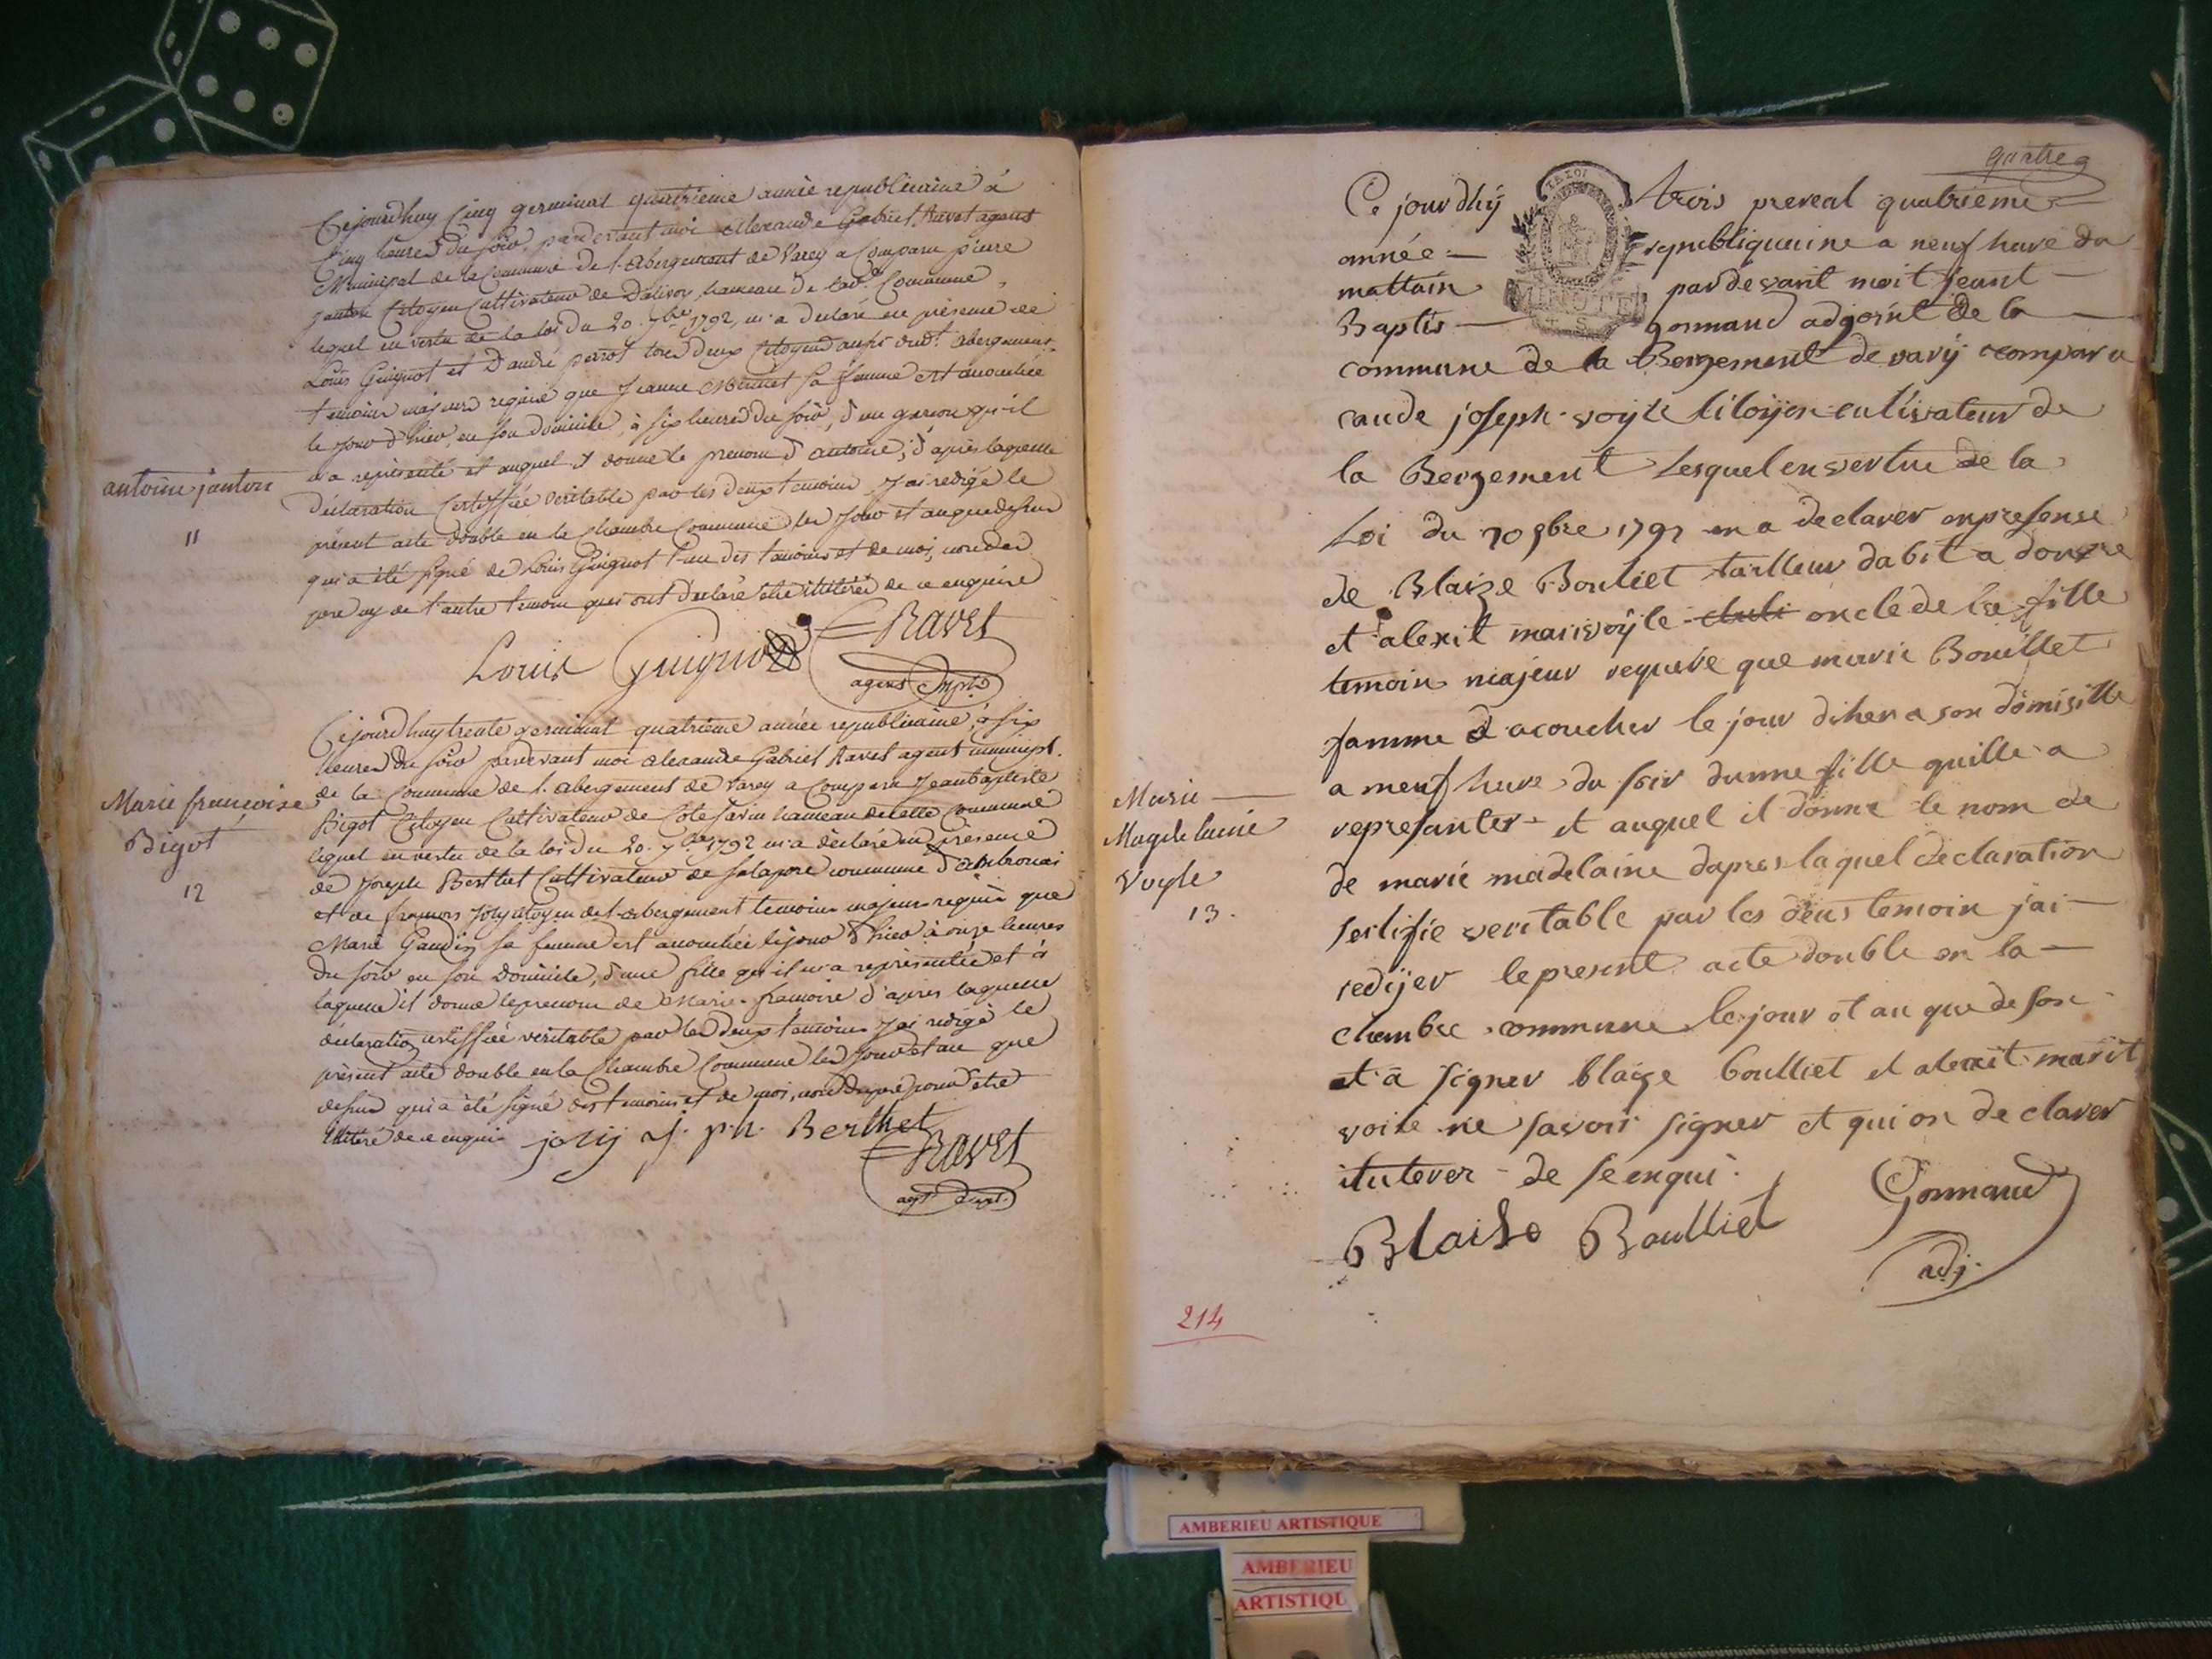 Cejourdhuy Cinq germinal quatrieme année republicaine à
Cinq heures du soir, pardevant moi Alexandre Gabriel Ravet agent
Municipal de la Commune de l'abergement de Varey a Comparu pierre
janton Citoyen Cultivateur de Dalivoy hameau de lad. Commune,
lequel en vertu de la loi du 20. 7bre 1792, m'a declaré en présence de
Louis Guignot et D'andré perrot tous deux Citoyens aussi dud. abergement
temoins majeurs requis que Jeanne Monnet sa femme est accouchée
le jour d'hier, en son domicile, à six heures du soir, d'un garcon qu'il
m'a représenté et auquel il donne le prenom d'antoine, d'après laquelle
antoine janton
11
déclaration Certiffiée veritable par les deux temoins J'ai redigé le
présent acte double en la Chambre Commune les Jour et an que dessus
qui a été signé de Louis Guignot l'un des temoins et de moi, non du
pere ny de l'autre temoin qui ont déclaré être illitéré de ce enquis
Louis Guignod RAVET
agent
Cejourdhuy trente germinal quatrième année republicaine, à six
heures du soir pardevant moi alexandre Gabriel Ravet agent municipl.
de la Commune de l'abergement de Varey a Comparu Jean baptiste
Marie françoise
Bigot
12
Bigot Citoyen Cultivateur de Cote Savin hameau de cette Commune
lequel en vertu de la loi du 20. 7bre 1792 m'a déclaré en présence
de Joseph Berthet Cultivateur de Salapore commune d'ambronai
et de françois Joly citoyen de l'abergement temoins majeurs requis que
Marie Gaudin sa femme est accouchée le jour d'hier à onze heures
du soir en son Domicile, d'une fille qu'il m'a représentée et à
laquelle il donne le prenom de Marie-francoise d'apres laquelle
déclaration certiffiée veritable par les deux temoins J'ai redigé le
présent acte double en la Chambre Commune les Jour et an que
dessus qui a été signé des temoins et de moi, non du pere pour etre
illitéré de ce enquis joly J. ph. Berthet
RAVET
agt.
quatre
Ce jourdhÿ trois prereal quatrieme
année republiquaine a neuf hure du
mattain par devant moit Jeant
MINUTE
Baptis gonmand adgoint de la
commune de la Bergement de varÿ compar u
caude joseph voyle sitoÿen cultivateur de
la Bergement Lesquel en vertue de la
Loi du 20 9bre 1792 m a declarer en presense
de Blaize Bouliet tailleur dabit a douvre
et alexit marivoÿle oncle de la fille
temoin majeur requere que marie Bouillet
famme d acoucher le jour diher a son domisille
Marie
Magdelaine
Voyle
13.
a neuf hure du soir dunne fille quille a
represanter et auquel il donne le nom de
de marie madelaine dapres laquel declaration
sertifie veritable par les deus temoin j'ai
redijer le present acte double en la
chambre commune le jour et an que deson
et a signer blaize boulliet et alexit marit
voile ne savoir signer et qui on declarer
itulerer de se enqui.
Blaise Boulliet Gonmand
adj.
214
AMBERIEU ARTISTIQUE
AMBERIEU
ARTISTIQU